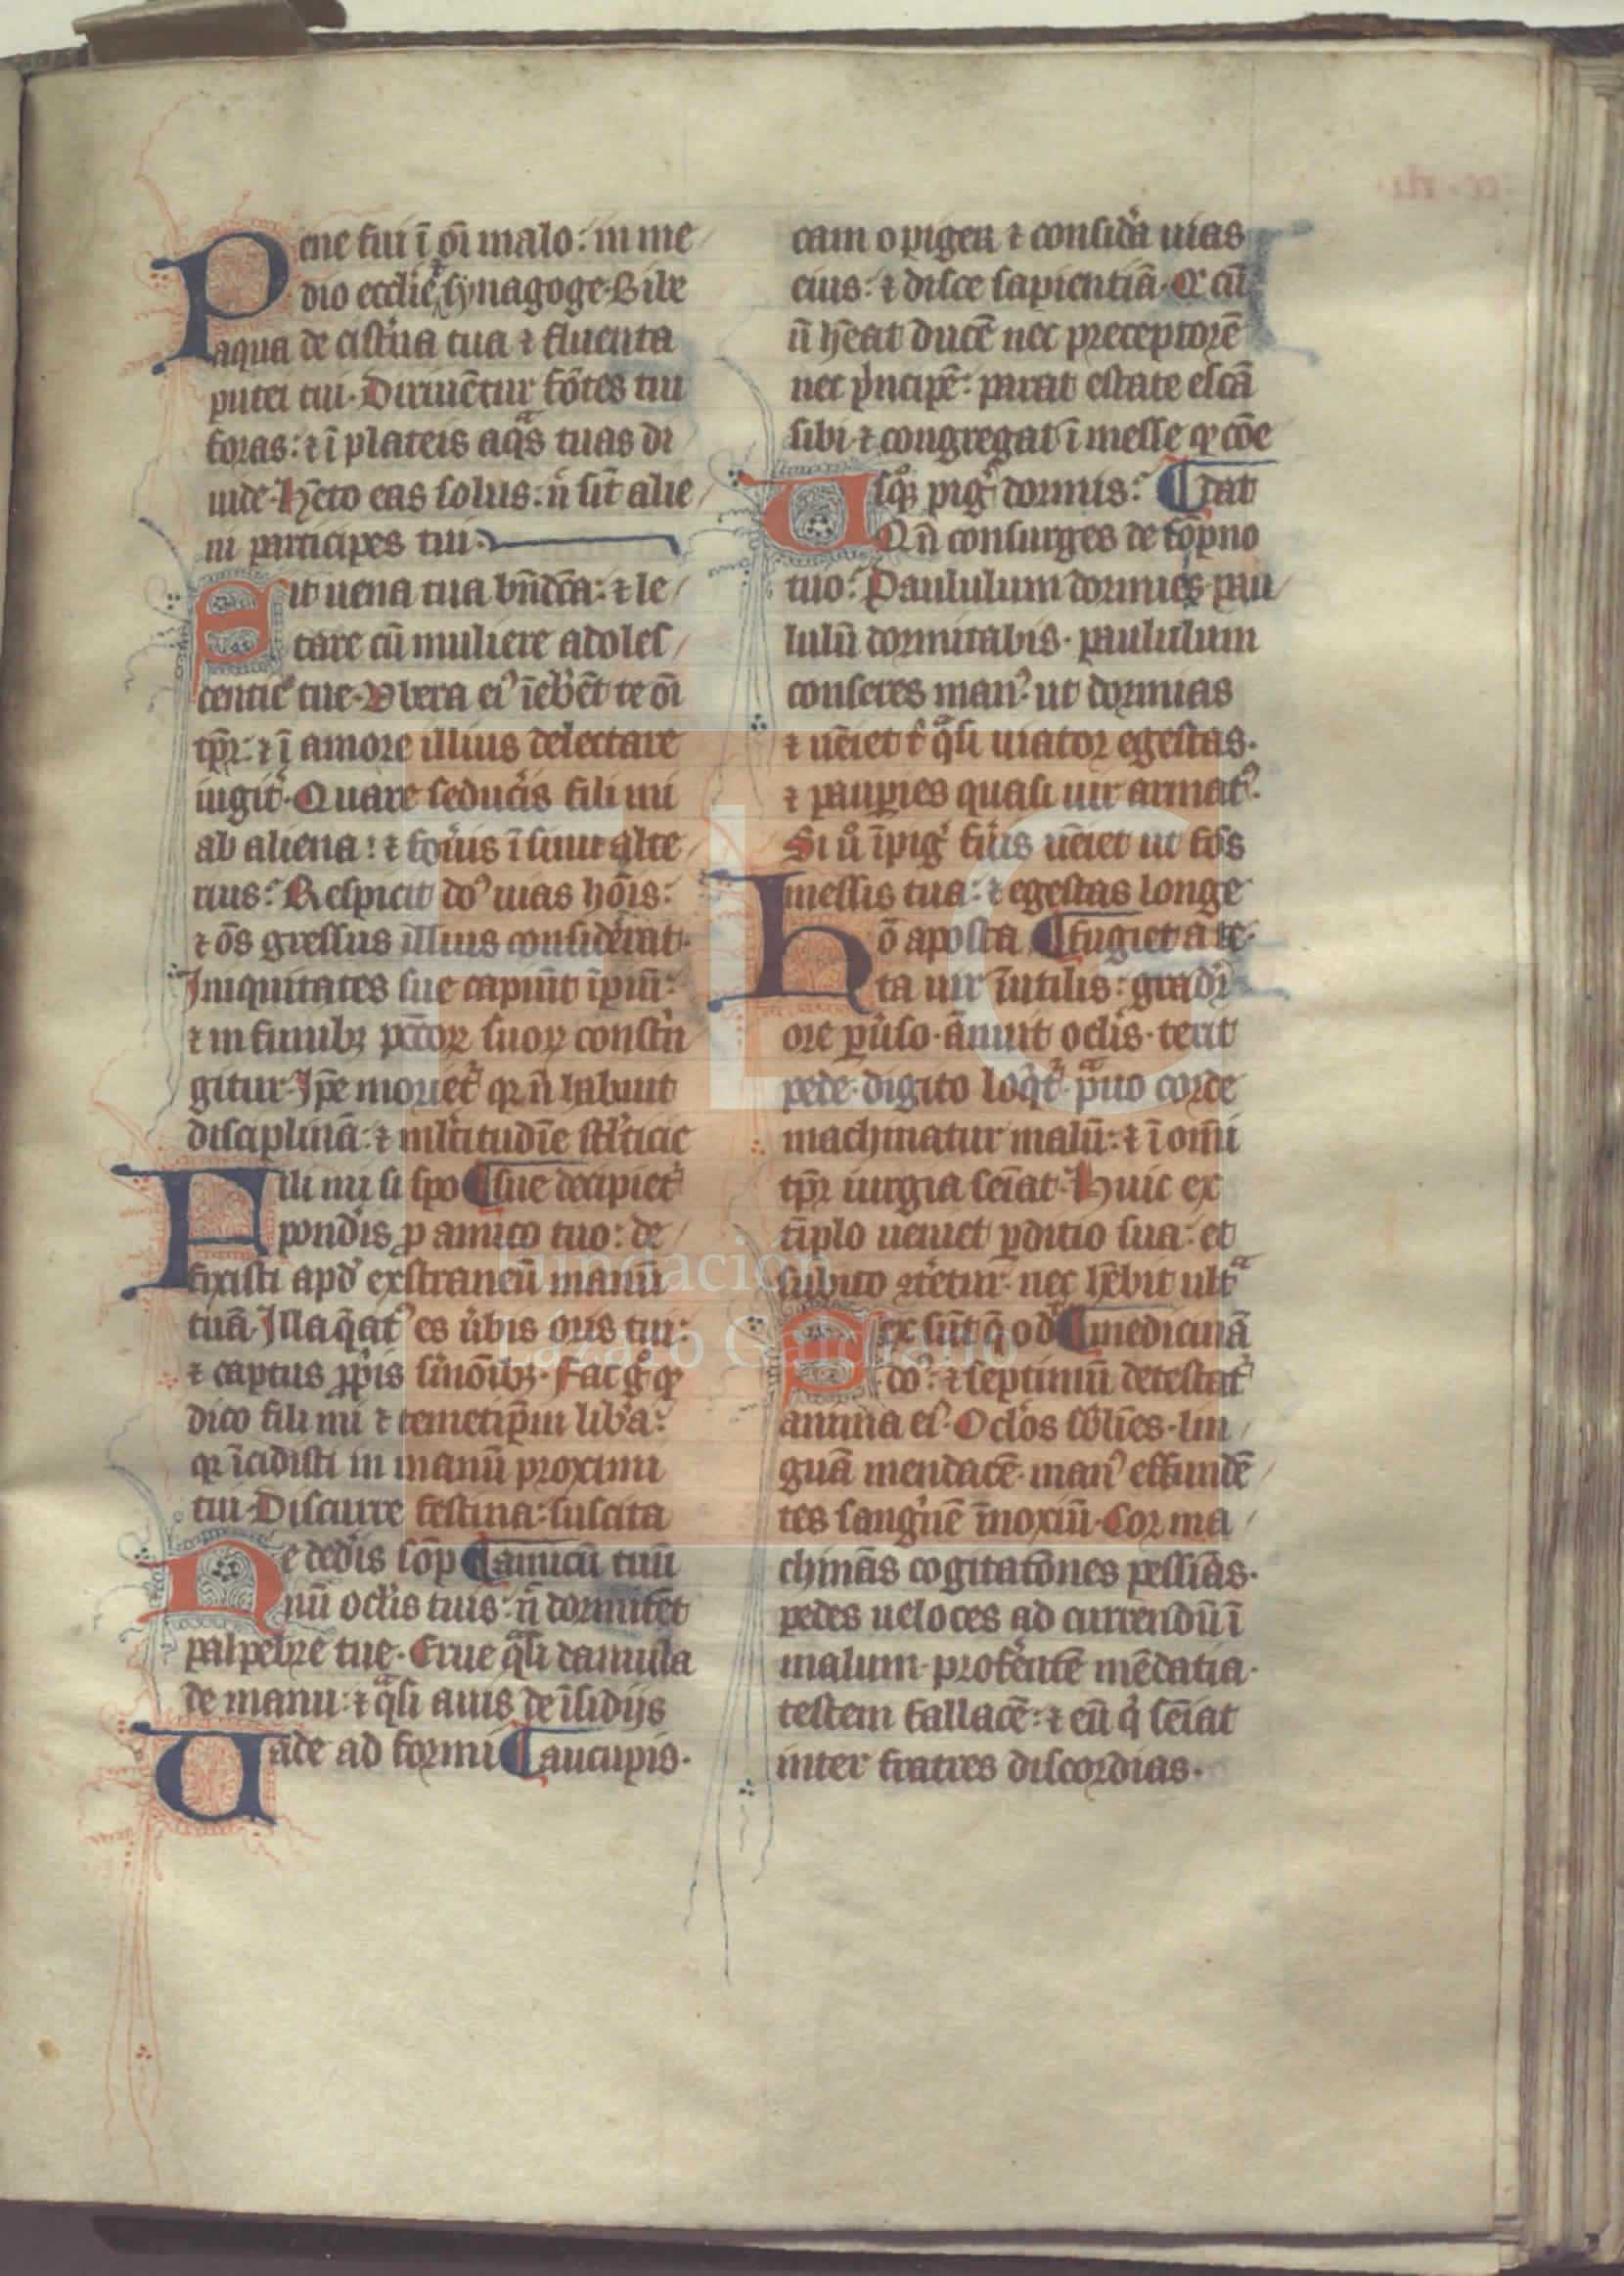 Pene fui ī oī malo: in me
dio ecclīe ⁊ synagoge. Bibe
aqua de cisťna tua ⁊ fluenta
putei tui. Diriuētur fōtes tui
foras: ⁊ ī plateis aqᵃs tuas di
uide. Hēto eas solus: ñ sīt alie
ni participes tui.
Sit uena tua bn̄dc̄a: ⁊ le
tare cū muliere adoles
centie tue. Vbera eiꝰ īeb̕ēt te oī
tp̄r: ⁊ ī amore illius delectare
iugit̕. Quare seduc̕is fili mi
ab aliena: ⁊ fou̕is ī sinu alte
rius: Respicit do᷒ uias hōis:
⁊ ōs gressus illius consid̕erat.
Iniquitates sue capiūt īpm̄:
⁊ in funibꝫ pc̄coꝝ suoꝝ constⁱn
gitur. Ip̄e moriet᷑ qꝛ ñ habuit
disciplinā: ⁊ ml̕titudīe stl̕ticie
Fili mi si spo ¶ sue decipiet᷑
pond̕is ꝓ amico tuo: de
fixisti apđ extraneū manū
tuā. Illaq̄atꝰ es u̕bis oris tui:
⁊ captus ꝓpⁱis s̕mōibꝫ. Fac gͦ qͩ
dico fili mi ⁊ temetip̄m lib̕a:
qꝛ īcidisti in manū proximi
tui. Discurre festina: suscita
Ne ded̕is sōp ¶ amicū tuū
nū ocl̕is tuis: ñ dormitēt
palpebre tue. Erue qᵃsi damula
de manu: ⁊ qᵃsi auis de īsidijs
Uade ad formi ¶ aucupis.
cam o piger ⁊ consid̕a uias
eius: ⁊ disce sapientiā. Q̄ cū
ñ hēat ducē nec preceptorē
nec pⁱncipē: parat estate escā
sibi ⁊ congregat ī messe qͩ cōe
Usqꝫ pig̕ dormis: ¶ dat
Qñ consurges de sōpno
tuo: Paululum dormies pau
lulū dormitabis. paululum
conseres manꝰ ut dormias
⁊ uēiet t̕ qᵃsi uiator egestas.
⁊ paup̕ies quasi uir armatꝰ.
Si u̕ īpig̕ fu̕is uēiet ut fōs
messis tua: ⁊ egestas longe
Hō aposta ¶ fugiet a te.
ta uir īutilis: gradit᷑
ore pu̕so. ānuit ocl̕is. terit
pede. digito loqⁱt᷑. pᵃuo corde
machinatur malū: ⁊ ī omī
tp̄r iurgia semīat. Huic ex
tīplo ueniet p̱ditio sua: et
subito 9teret᷑. nec hēbit ultᵃ
Sex sūt q̄ od ¶ medicinā
do᷒: ⁊ septimū detestat᷑
anima eiꝰ. Ocl̕os sb̕līes. lin
guā mendacē. manꝰ effundē
tes sangⁱnē īnoxiū. Cor ma
chinās cogitatōnes pessīas.
pedes ueloces ad currendū ī
malum. profe̕ntē mēdatia.
testem fallacē: ⁊ eū qⁱ semīat
inter fratres discordias.
Fundación
Lázaro Galdiano